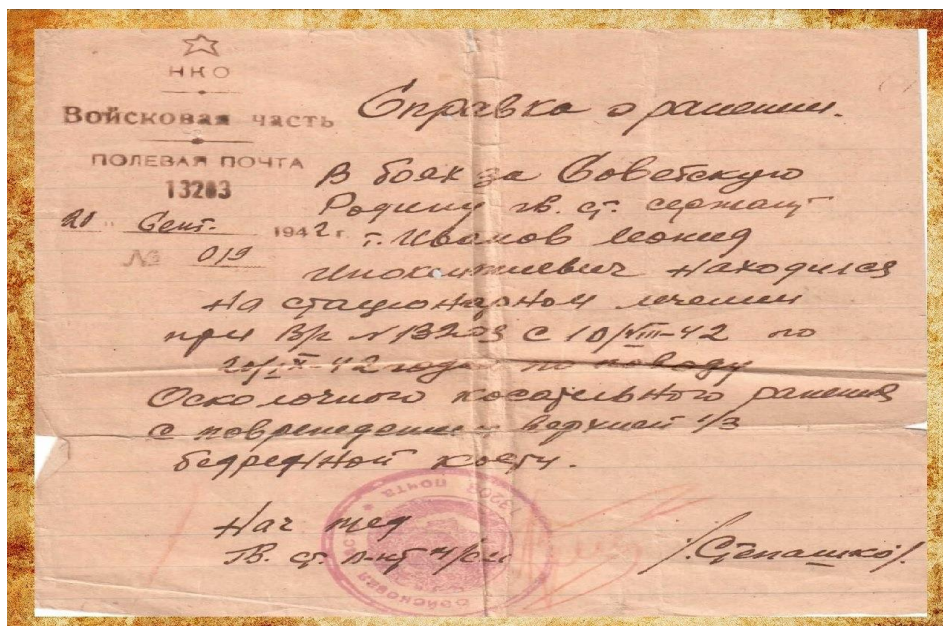 НКО
Войсковая часть
ПОЛЕВАЯ ПОЧТА
13203
20 " Сент. 1942 г.
№ 019
Справка о ранении.
В боях за Советскую
Родину гв. ст. сержант
т. Иванов Леонид
Инокентиевич находился
на стационарном лечении
при В/ч N 13203 с 10/VIII-42 по
20/IX-42 года по поводу
Осколочного касательного ранения
с повреждением верхней 1/3
бедренной кости.
Нач мед
Гв. ст. л-нт м/сл
/.Степашко/.
ВОЙСКОВАЯ ЧАСТЬ 13203 ПОЧТА